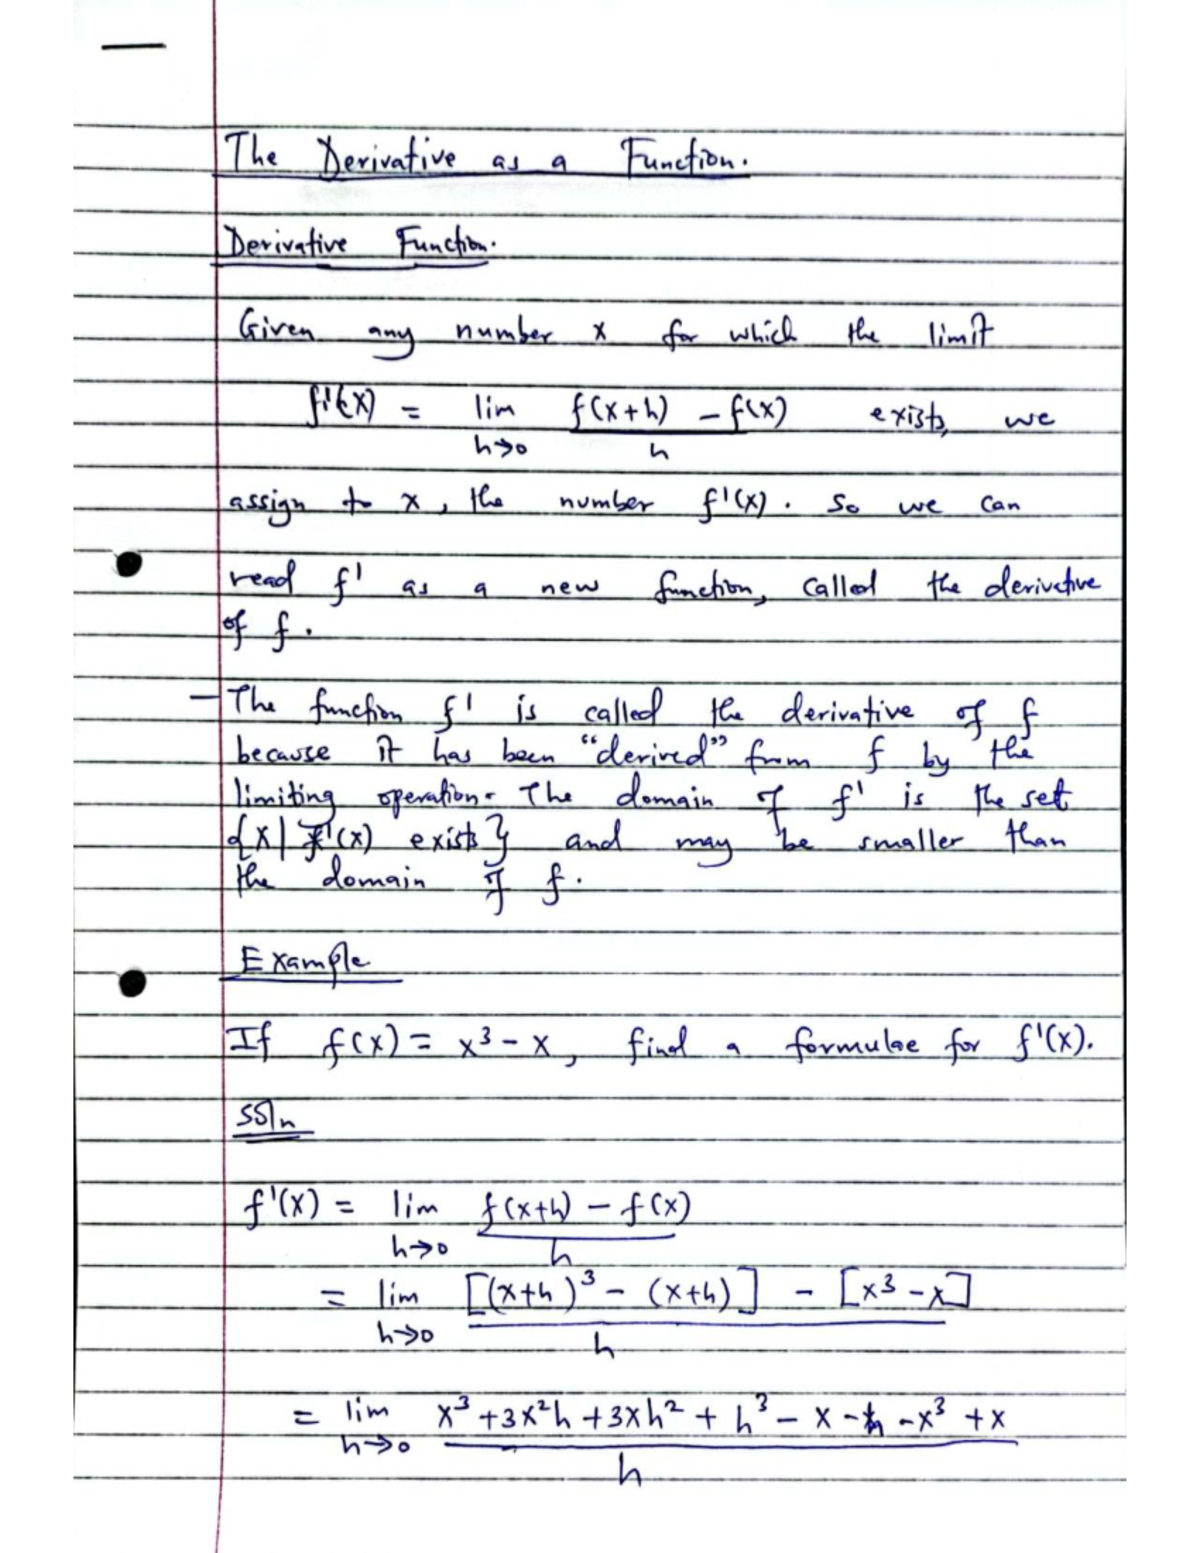 The Derivative as a Function.
Derivative Function.
Given any number x for which the limit
f'(x) = lim f(x+h) - f(x) exists, we
h→0 h
assign to x, the number f'(x). So we can
read f' as a new function, called the derivative
of f.
- The function f' is called the derivative of f
because it has been “derived” from f by the
limiting operation. The domain of f' is the set
{x| f'(x) exists} and may be smaller than
the domain of f.
Example
If f(x) = x³ - x, find a formulae for f'(x).
Soln
f'(x) = lim f(x+h) - f(x)
h→0 h
= lim [(x+h)³ - (x+h)] - [x³ - x]
h→0 h
= lim x³ + 3x²h + 3xh² + h³ - x - h - x³ + x
h→0 h